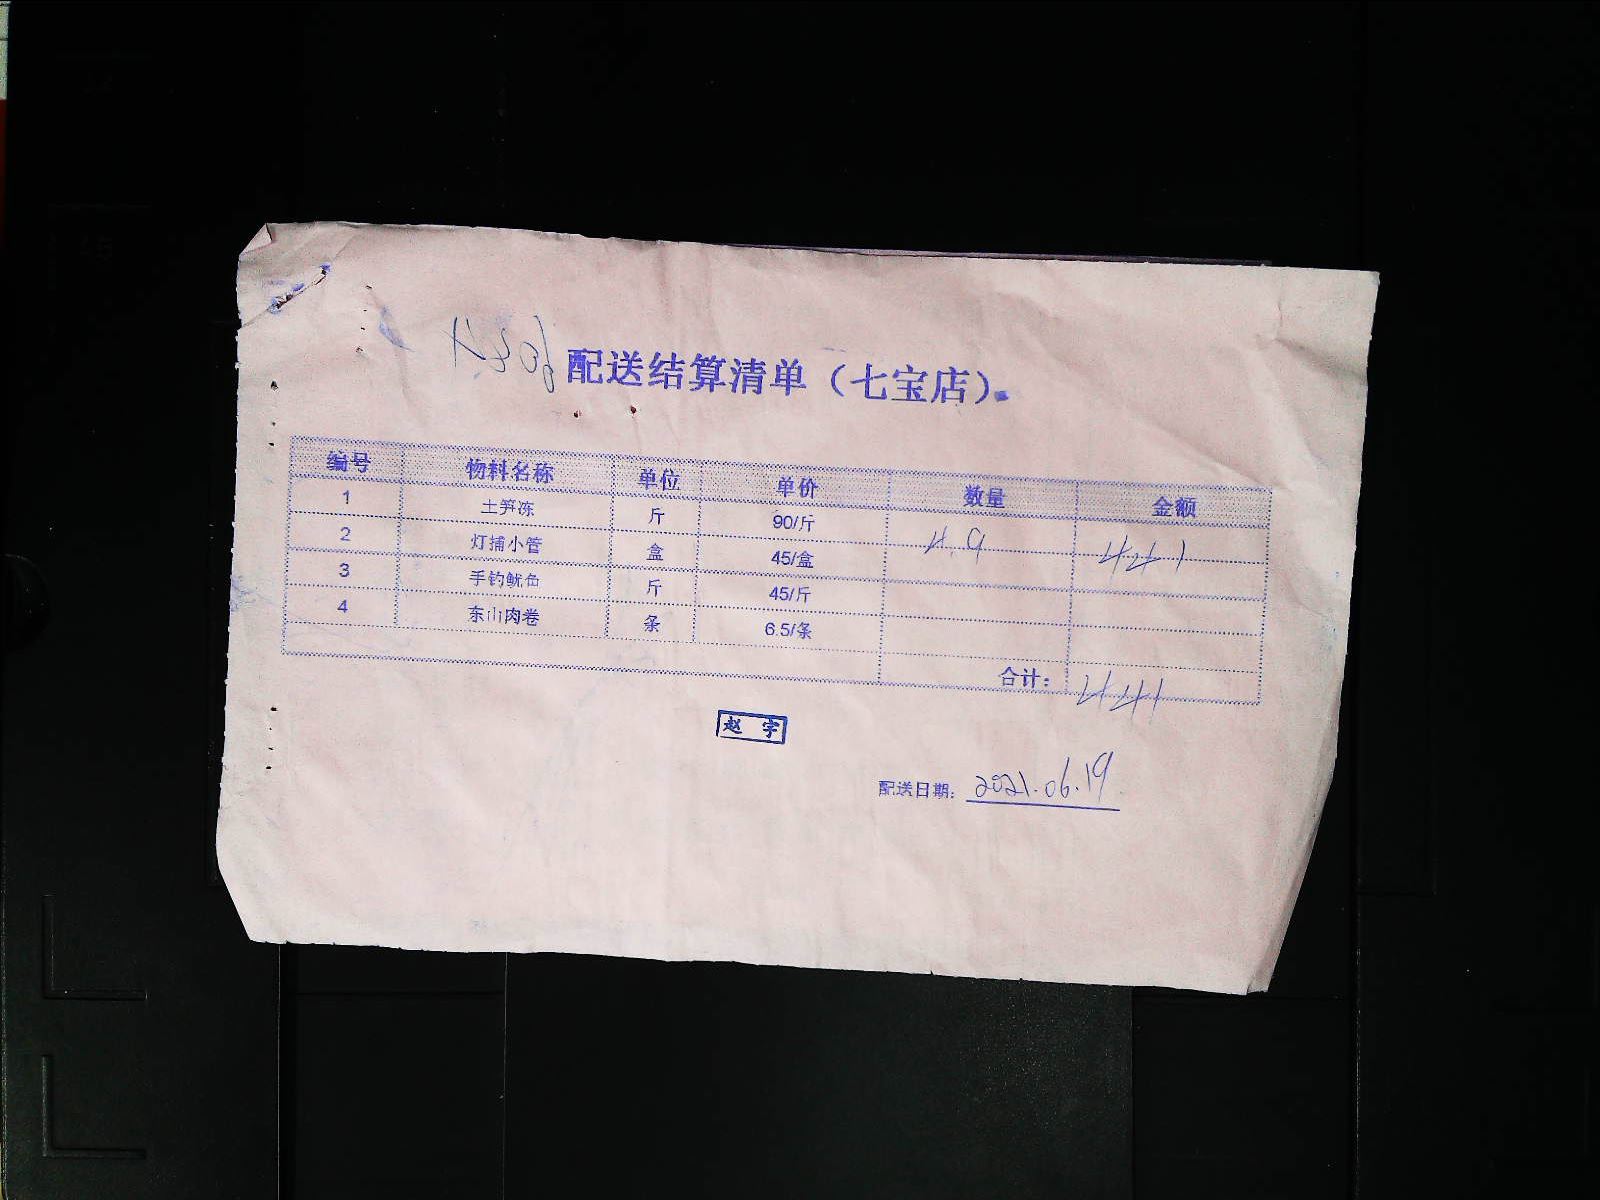 配送结算清单（七宝店）
编号 物料名称 单位 单价 数量 金额
1 土笋冻 斤 90/斤 4.9 441
2 灯捕小管 盒 45/盒
3 手钓鱿鱼 斤 45/斤
4 东山肉卷 条 6.5/条
合计： 441
赵宇
配送日期： 2021.06.19